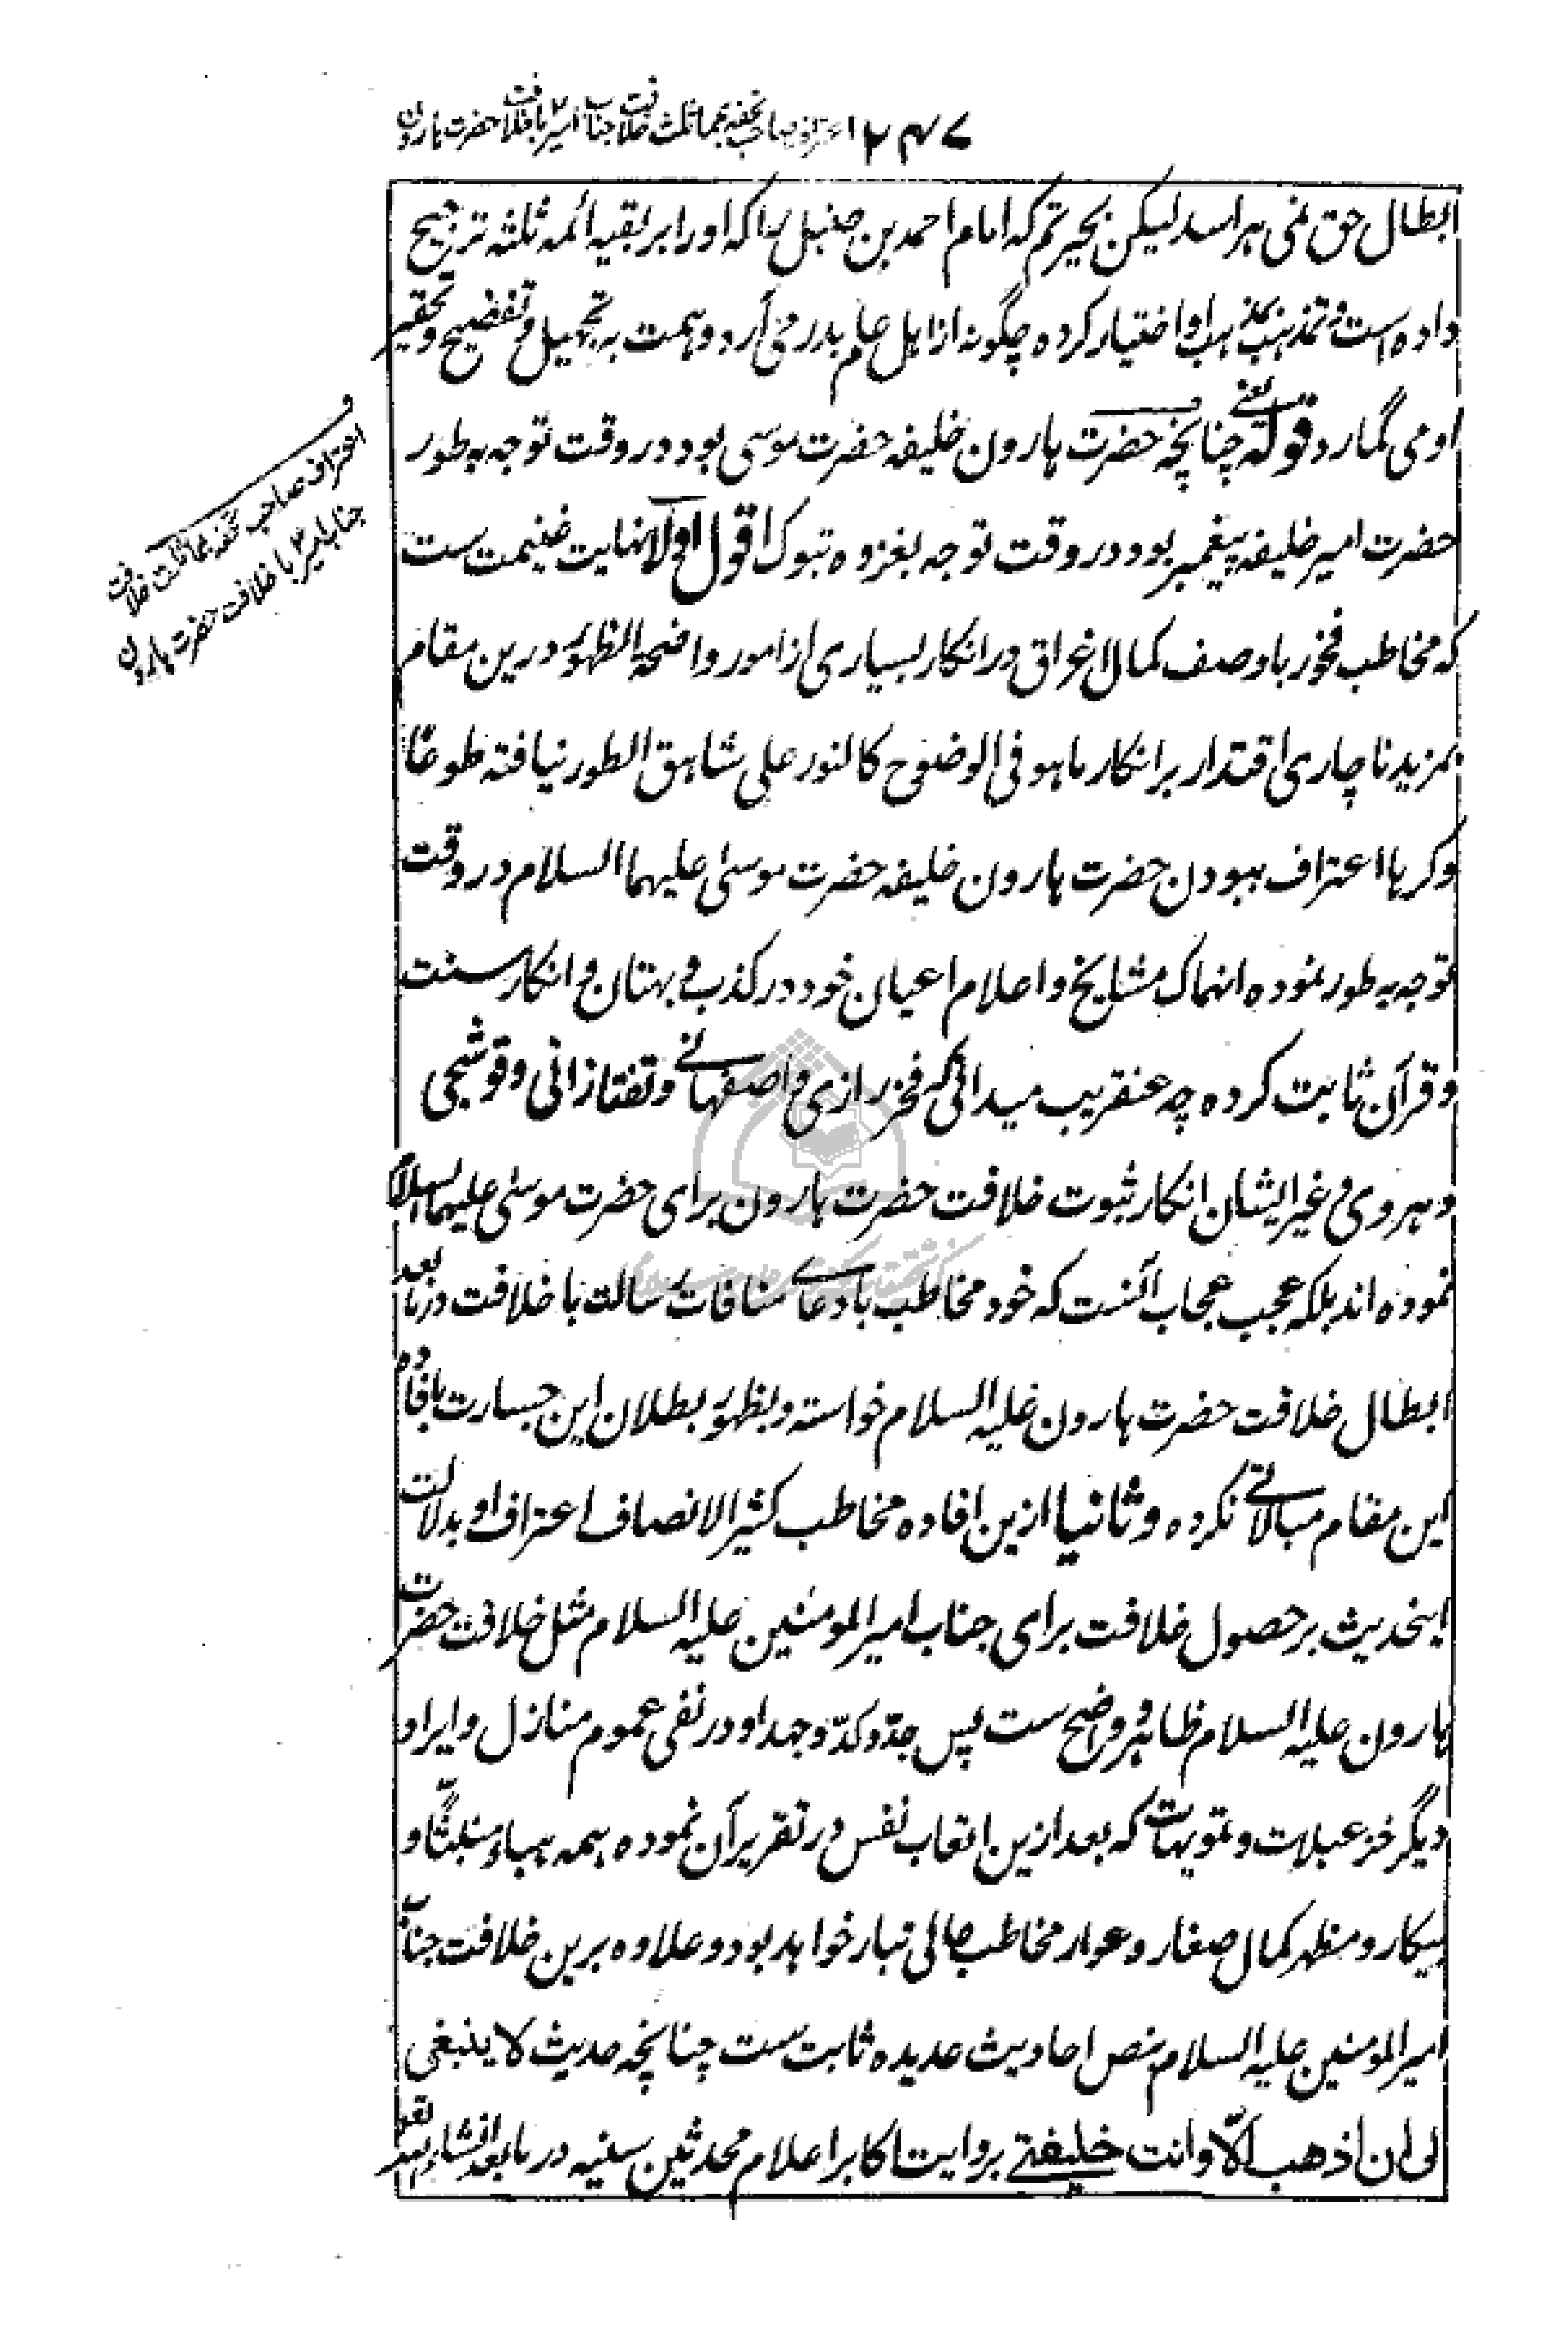 ۱۲۴۷ اعتراف صاحب تحفه بمماثلت خلافت جناب امیر ؑ با خلافت حضرت هارون
ابطال حق نمی هراسد لیکن بحیرتم که امام احمد بن حنبل را که او را بر بقیه ائمه ثلثه ترجیح
داده است و تمذهب بمذهب او اختیار کرده چگونه از اهل علم بدر می آرد و همت به تجهیل و تفضیح و تحقیر
او می گمارد قوله یعنی چنانچه حضرت هارون خلیفه حضرت موسی بود در وقت توجه به طور
حضرت امیر خلیفه پیغمبر بود در وقت توجه بغزوه تبوک اقول اولا نهایت غنیمت ست
که مخاطب فخور با وصف کمال اغراق در انکار بسیاری از امور واضحة الظهور درین مقام
بمزید ناچاری اقتدار بر انکار ما هو فی الوضوح کالنور علی شاهق الطور نیافته طوعًا
و کرها اعتراف ببودن حضرت هارون خلیفه حضرت موسیٰ علیهما السلام در وقت
توجه به طور نموده انهماک مشایخ و اعلام اعیان خود در کذب و بهتان و انکار سنت
و قرآن ثابت کرده چه عنقریب میدانی که فخر رازی و اصفهانی و تفتازانی و قوشجی
و هروی و غیر ایشان انکار ثبوت خلافت حضرت هارون برای حضرت موسیٰ علیهما السلام
نموده اند بلکه عجب عجاب آنست که خود مخاطب بادعای منافات رسالت با خلافت در ما بعد
ابطال خلافت حضرت هارون علیه السلام خواسته و بظهور بطلان این جسارت بافاده
این مقام مبالاتی نکرده و ثانیا ازین افاده مخاطب کثیر الانصاف اعتراف او بدلالت
اینحدیث بر حصول خلافت برای جناب امیر المومنین علیه السلام مثل خلافت حضرت
هارون علیه السلام ظاهر و واضح ست پس جدّ و کدّ و جهد او در نفی عموم منازل و ایراد
دیگر خزعبلات و تمویهات که بعد ازین اتعاب نفس در تقریر آن نموده همه هباء منبثًّا و
بیکار و مظهر کمال صغار و عوار مخاطب عالی تبار خواهد بود و علاوه برین خلافت جناب
امیر المومنین علیه السلام بنص احادیث عدیده ثابت ست چنانچه حدیث لا ینبغی
لی ان اذهب الّا و انت خلیفتی بروایت اکابر اعلام محدثین سنیه در ما بعد انشاء الله
اعتراف صاحب تحفه بمماثلت خلافت
جناب امیر ؑ با خلافت حضرت هارون